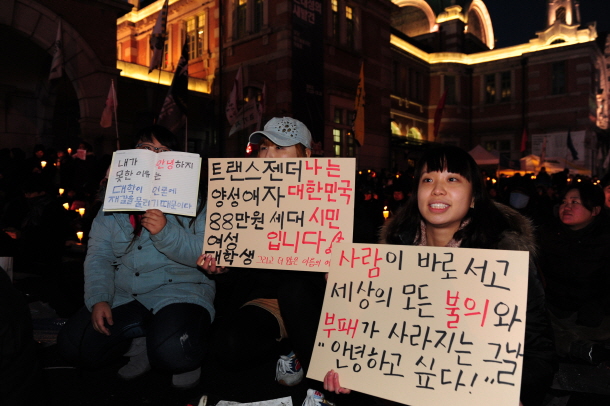 내가 안녕하지
못한 이유는
대학이 언론에
재갈을 물리기 때문이다
트랜스젠더 나는
양성애자 대한민국
88만원 세대 시민
여성 입니다!
대학생
그리고 더 많은 이름의
사람이 바로 서고
세상의 모든 불의와
부패가 사라지는 그날
"안녕하고 싶다!"